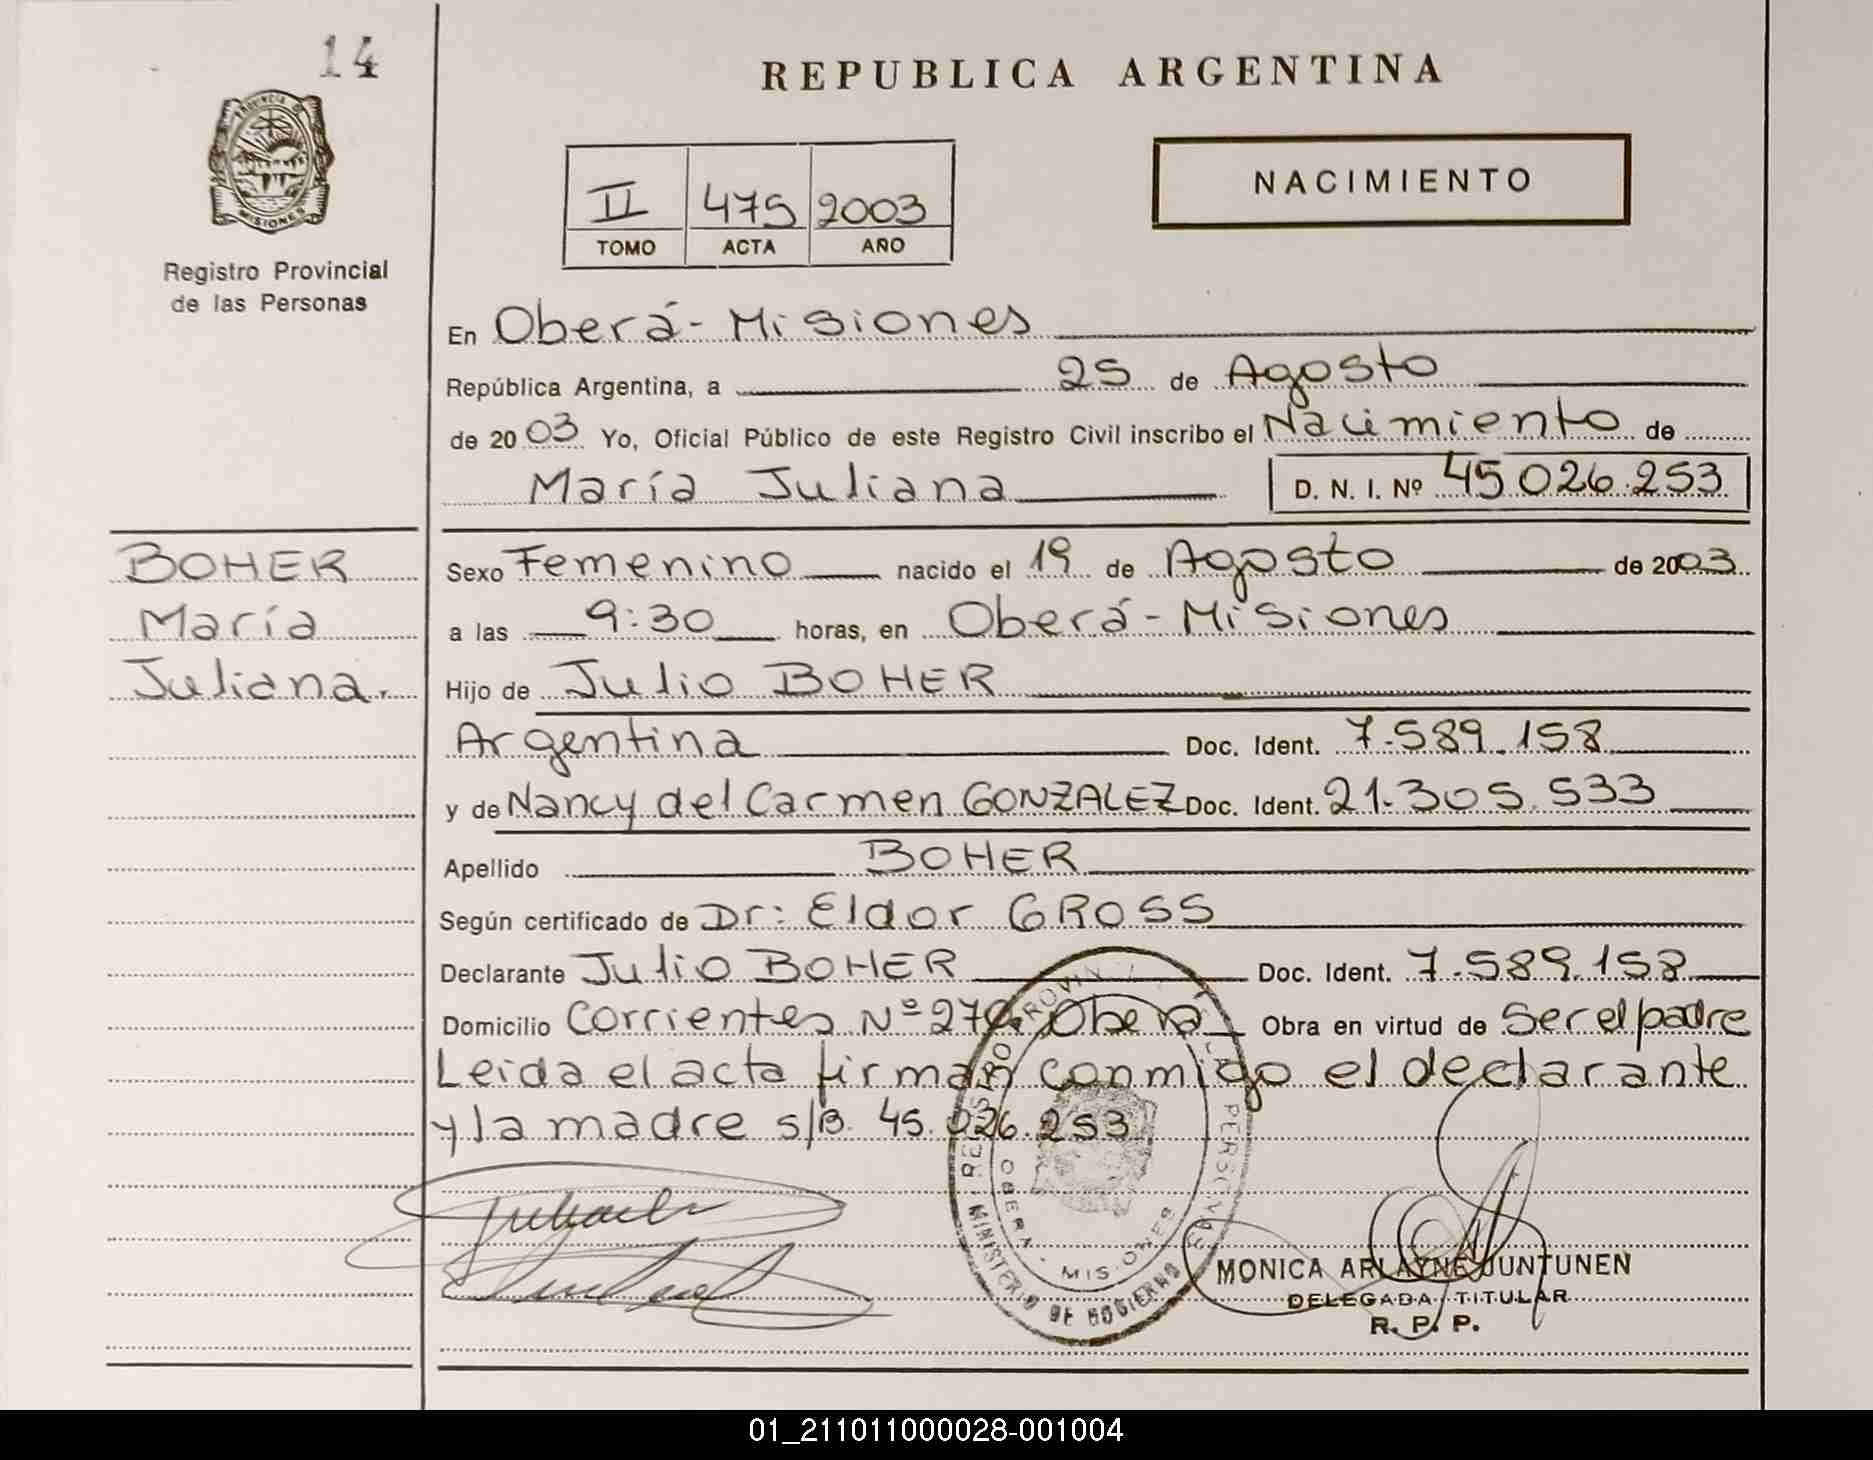 14
REPUBLICA ARGENTINA
PROVINCIA DE
MISIONES
Registro Provincial
de las Personas
II 475 2003
TOMO ACTA AÑO
NACIMIENTO
En Oberá - Misiones
República Argentina, a 25 de Agosto
de 2003 Yo, Oficial Público de este Registro Civil inscribo el Nacimiento de
María Juliana D. N. I. Nº 45.026.253
BOHER
María
Juliana.
Sexo Femenino nacido el 19 de Agosto de 2003
a las 9:30 horas, en Oberá - Misiones
Hijo de Julio BOHER
Argentina Doc. Ident. 7.589.158
y de Nancy del Carmen GONZALEZ Doc. Ident. 21.305.533
Apellido BOHER
Según certificado de Dr: Eldor GROSS
Declarante Julio BOHER Doc. Ident. 7.589.158
Domicilio Corrientes Nº Oberá Obra en virtud de Ser el padre
Leida el acta firman conmigo el declarante
y la madre s/B. 45.026.253
OBERA - MISIONES
MINISTERIO DE GOBIERNO
MONICA ARLAYNE JUNTUNEN
DELEGADA TITULAR
R. P. P.
01_211011000028-001004